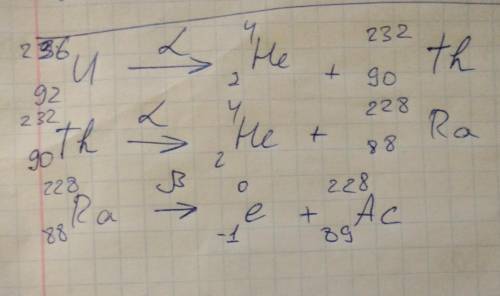 ²³⁶₉₂U —α→ ⁴₂He + ²³²₉₀Th
²³²₉₀Th —α→ ⁴₂He + ²²⁸₈₈Ra
²²⁸₈₈Ra —β→ ⁰₋₁e + ²²⁸₈₉Ac